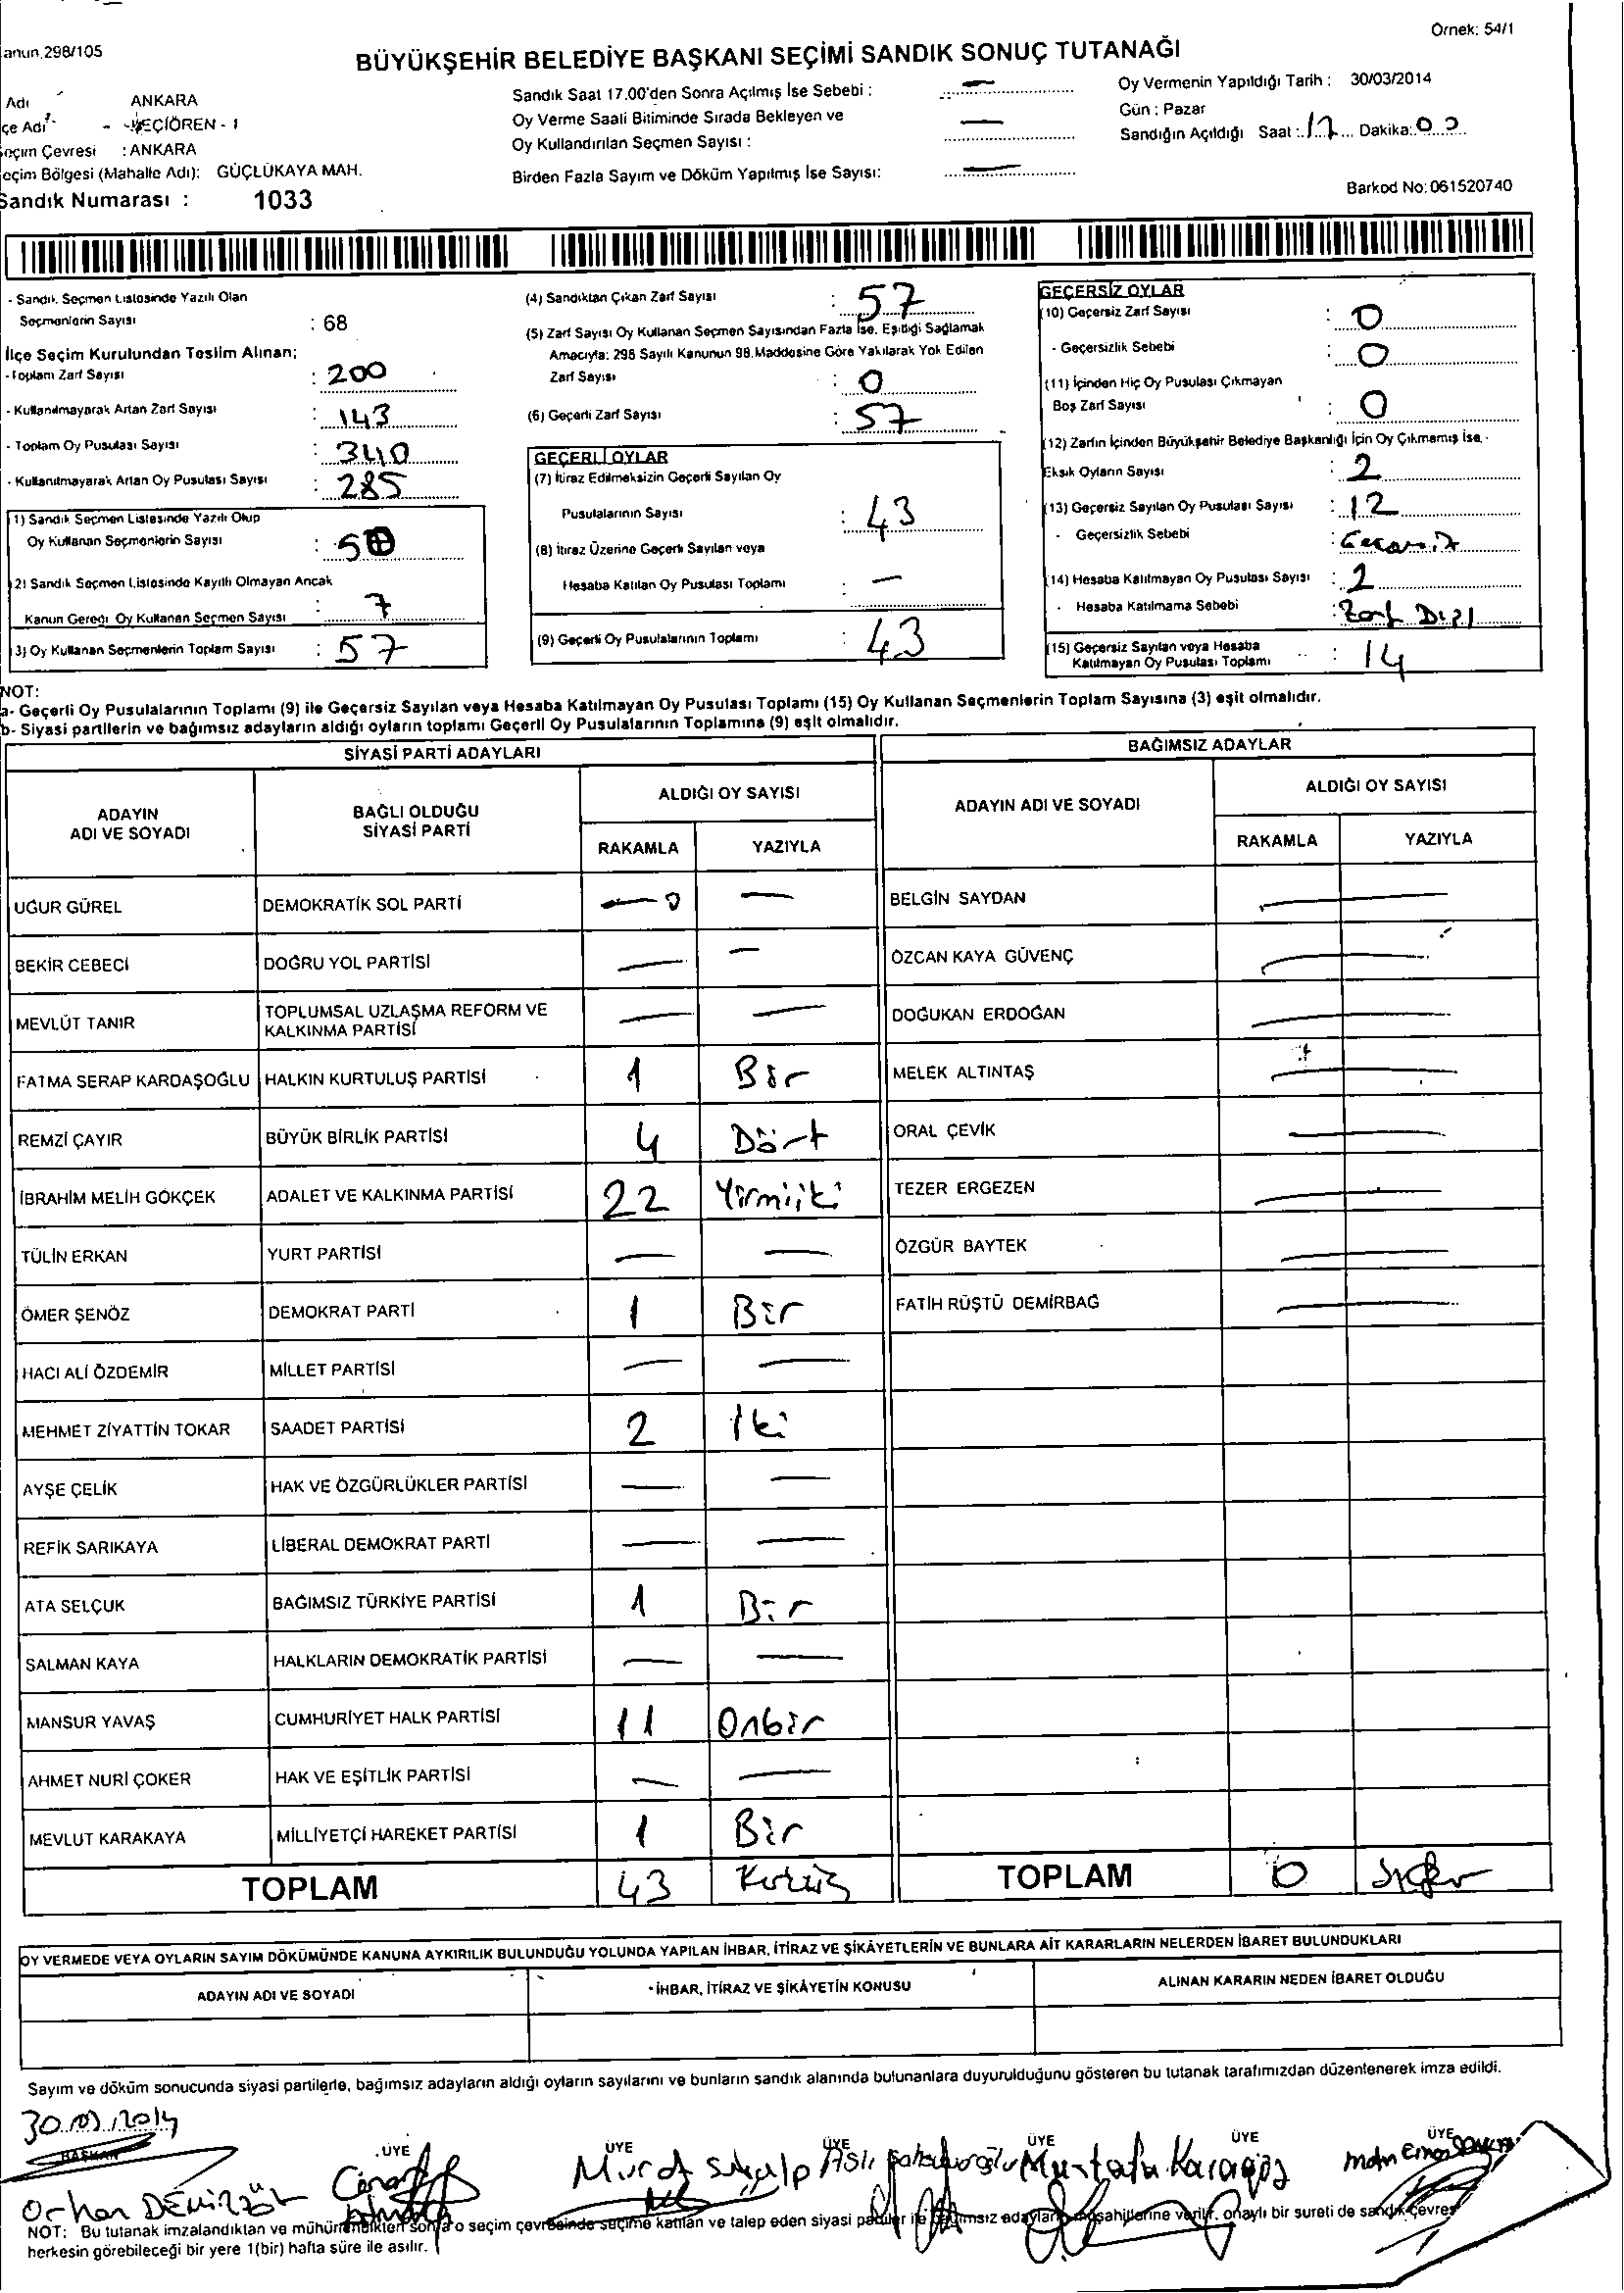 Örnek: 54/1
anun.298/105
BÜYÜKŞEHİR BELEDİYE BAŞKANI SEÇİMİ SANDIK SONUÇ TUTANAĞI
Adı ANKARA
çe Adı -EÇİÖREN - 1
eçim Çevresi : ANKARA
eçim Bölgesi (Mahalle Adı): GÜÇLÜKAYA MAH.
Sandık Numarası : 1033
Sandık Saat 17.00'den Sonra Açılmış İse Sebebi : —
Oy Verme Saati Bitiminde Sırada Bekleyen ve
Oy Kullandırılan Seçmen Sayısı : —
Birden Fazla Sayım ve Döküm Yapılmış İse Sayısı: —
Oy Vermenin Yapıldığı Tarih : 30/03/2014
Gün : Pazar
Sandığın Açıldığı Saat : 17 Dakika: 00
Barkod No: 061520740
- Sandık Seçmen Listesinde Yazılı Olan
Seçmenlerin Sayısı : 68
İlçe Seçim Kurulundan Teslim Alınan;
- Toplam Zarf Sayısı : 200
- Kullanılmayarak Artan Zarf Sayısı : 143
- Toplam Oy Pusulası Sayısı : 340
- Kullanılmayarak Artan Oy Pusulası Sayısı : 285
1) Sandık Seçmen Listesinde Yazılı Olup
Oy Kullanan Seçmenlerin Sayısı :
2) Sandık Seçmen Listesinde Kayıtlı Olmayan Ancak
Kanun Gereği Oy Kullanan Seçmen Sayısı : 7
3) Oy Kullanan Seçmenlerin Toplam Sayısı : 57
(4) Sandıktan Çıkan Zarf Sayısı : 57
(5) Zarf Sayısı Oy Kullanan Seçmen Sayısından Fazla İse, Eşitliği Sağlamak
Amacıyla: 298 Sayılı Kanunun 98.Maddesine Göre Yakılarak Yok Edilen
Zarf Sayısı : 0
(6) Geçerli Zarf Sayısı : 57
GEÇERLİ OYLAR
(7) İtiraz Edilmeksizin Geçerli Sayılan Oy
Pusulalarının Sayısı : 43
(8) İtiraz Üzerine Geçerli Sayılan veya
Hesaba Katılan Oy Pusulası Toplamı : —
(9) Geçerli Oy Pusulalarının Toplamı : 43
GEÇERSİZ OYLAR
(10) Geçersiz Zarf Sayısı : 0
- Geçersizlik Sebebi : 0
(11) İçinden Hiç Oy Pusulası Çıkmayan
Boş Zarf Sayısı : 0
(12) Zarfın İçinden Büyükşehir Belediye Başkanlığı İçin Oy Çıkmamış İse,
Eksik Oyların Sayısı : 2
(13) Geçersiz Sayılan Oy Pusulası Sayısı : 12
- Geçersizlik Sebebi :
(14) Hesaba Katılmayan Oy Pusulası Sayısı : 2
- Hesaba Katılmama Sebebi :
(15) Geçersiz Sayılan veya Hesaba
Katılmayan Oy Pusulası Toplamı : 14
NOT:
a- Geçerli Oy Pusulalarının Toplamı (9) ile Geçersiz Sayılan veya Hesaba Katılmayan Oy Pusulası Toplamı (15) Oy Kullanan Seçmenlerin Toplam Sayısına (3) eşit olmalıdır.
b- Siyasi partilerin ve bağımsız adayların aldığı oyların toplamı Geçerli Oy Pusulalarının Toplamına (9) eşit olmalıdır.
SİYASİ PARTİ ADAYLARI
ADAYIN ADI VE SOYADI BAĞLI OLDUĞU SİYASİ PARTİ ALDIĞI OY SAYISI
RAKAMLA YAZIYLA
UĞUR GÜREL DEMOKRATİK SOL PARTİ — 0 —
BEKİR CEBECİ DOĞRU YOL PARTİSİ — —
MEVLÜT TANIR TOPLUMSAL UZLAŞMA REFORM VE KALKINMA PARTİSİ — —
FATMA SERAP KARDAŞOĞLU HALKIN KURTULUŞ PARTİSİ 1 Bir
REMZİ ÇAYIR BÜYÜK BİRLİK PARTİSİ 4 Dört
İBRAHİM MELİH GÖKÇEK ADALET VE KALKINMA PARTİSİ 22 Yirmiiki
TÜLİN ERKAN YURT PARTİSİ — —
ÖMER ŞENÖZ DEMOKRAT PARTİ 1 Bir
HACI ALİ ÖZDEMİR MİLLET PARTİSİ — —
MEHMET ZİYATTİN TOKAR SAADET PARTİSİ 2 İki
AYŞE ÇELİK HAK VE ÖZGÜRLÜKLER PARTİSİ — —
REFİK SARIKAYA LİBERAL DEMOKRAT PARTİ — —
ATA SELÇUK BAĞIMSIZ TÜRKİYE PARTİSİ 1 Bir
SALMAN KAYA HALKLARIN DEMOKRATİK PARTİSİ — —
MANSUR YAVAŞ CUMHURİYET HALK PARTİSİ 11 Onbir
AHMET NURİ ÇOKER HAK VE EŞİTLİK PARTİSİ — —
MEVLUT KARAKAYA MİLLİYETÇİ HAREKET PARTİSİ 1 Bir
TOPLAM 43
BAĞIMSIZ ADAYLAR
ADAYIN ADI VE SOYADI ALDIĞI OY SAYISI
RAKAMLA YAZIYLA
BELGİN SAYDAN —
ÖZCAN KAYA GÜVENÇ —
DOĞUKAN ERDOĞAN —
MELEK ALTINTAŞ —
ORAL ÇEVİK —
TEZER ERGEZEN —
ÖZGÜR BAYTEK —
FATİH RÜŞTÜ DEMİRBAĞ —
TOPLAM 0
OY VERMEDE VEYA OYLARIN SAYIM DÖKÜMÜNDE KANUNA AYKIRILIK BULUNDUĞU YOLUNDA YAPILAN İHBAR, İTİRAZ VE ŞİKÂYETLERİN VE BUNLARA AİT KARARLARIN NELERDEN İBARET BULUNDUKLARI
ADAYIN ADI VE SOYADI İHBAR, İTİRAZ VE ŞİKÂYETİN KONUSU ALINAN KARARIN NEDEN İBARET OLDUĞU
Sayım ve döküm sonucunda siyasi partilerle, bağımsız adayların aldığı oyların sayılarını ve bunların sandık alanında bulunanlara duyurulduğunu gösteren bu tutanak tarafımızdan düzenlenerek imza edildi.
30.03.2014
BAŞKAN ÜYE ÜYE ÜYE ÜYE ÜYE ÜYE
Orhan Murat Aslı Mustafa Karagöz
NOT: Bu tutanak imzalandıktan ve mühürlendikten sonra o seçim çevresinde seçime katılan ve talep eden siyasi partiler ile bağımsız adayların müşahitlerine verilir, onaylı bir sureti de sandık çevres
herkesin görebileceği bir yere 1(bir) hafta süre ile asılır.